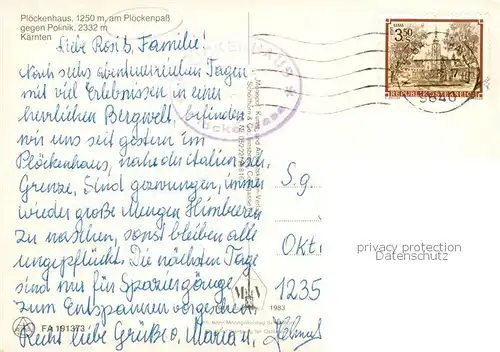 Plöckenhaus, 1250 m, am Plöckenpaß
gegen Polinik, 2332 m
Kärnten
Liebe Rosi b. Familie!
Nach sechs abenteuerreichen Tagen
mit viel Erlebnissen in einer
herrlichen Bergwelt, befinden
wir uns seit gestern im
Plöckenhaus, nahe der italien.
Grenze. Sind gezwungen, immer
wieder große Mengen Himbeeren
zu naschen, sonst bleiben alle
ungepflückt. Die nächsten Tage
sind nur für Spaziergänge
zum Entspannen vorgesehen.
Recht liebe Grüße v. Maria u. Helmut
FA 191373
3.50
REPUBLIK ÖSTERREICH
S.g.
Okt.
1235
1983
privacy protection